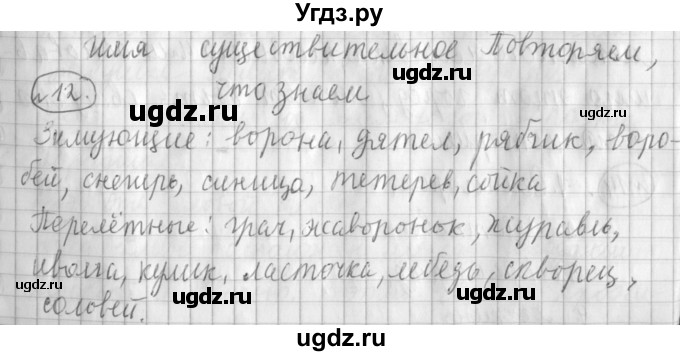 Угдз.ру
Имя существительное Повторяем,
12. что знаем
ugdz.ru ugdz.ru
Зимующие: ворона, дятел, рябчик, воро-
ugdz.ru
бей, снегирь, синица, тетерев, сойка
ugdz.ru ugdz.ru
Перелётные: грач, жаворонок, журавль,
ugdz.ru
иволга, кулик, ласточка, лебедь, скворец,
ugdz.ru ugdz.ru
соловей.
ugdz.ru